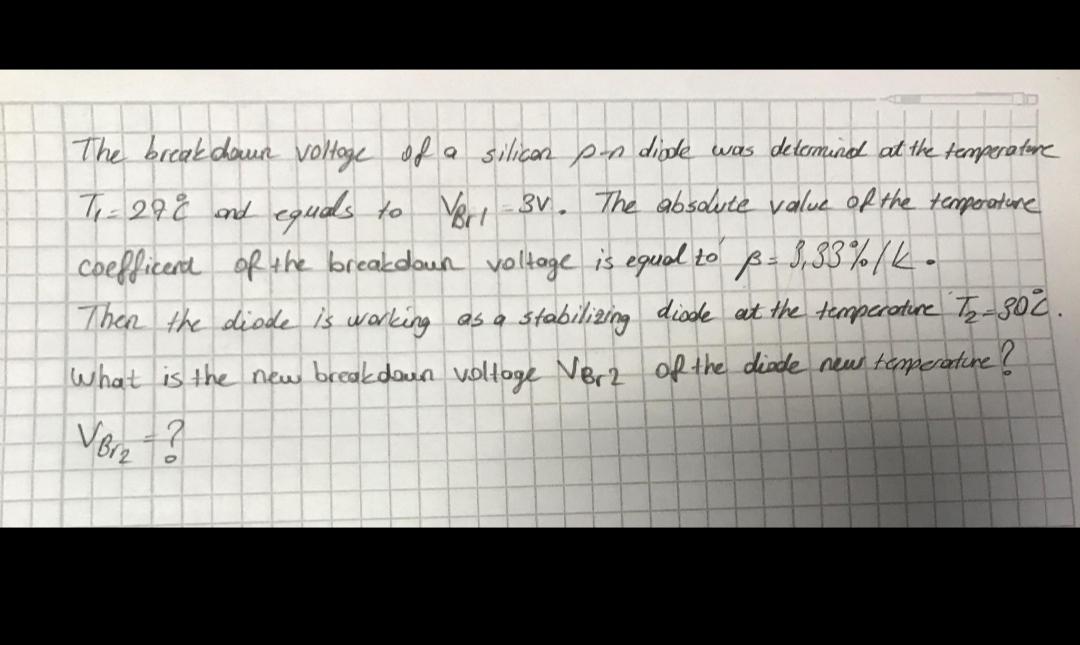 The breakdown voltage of a silicon p-n diode was determined at the temperature
T₁=27°C and equals to VBr1=3V. The absolute value of the temperature
coefficent of the breakdown voltage is equal to β=3,33%/K.
Then the diode is working as a stabilizing diode at the temperature T₂=30°C.
What is the new breakdown voltage VBr2 of the diode new temperature?
VBr₂=?